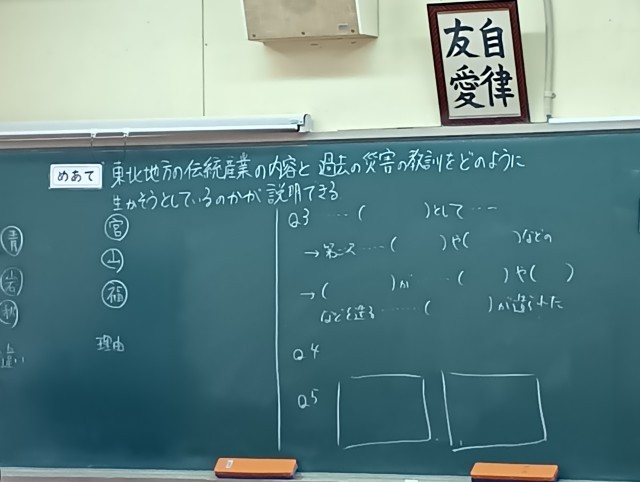 自律
友愛
めあて
東北地方の伝統産業の内容と過去の災害の教訓をどのように
生かそうとしているのかが説明できる
青
岩
秋
違い
宮
山
福
理由
Q3 ‥‥( )として‥‥
→第二次‥‥( )や( )などの
→( )が‥( )や( )
などを送る‥‥‥( )が造られた
Q4
Q5